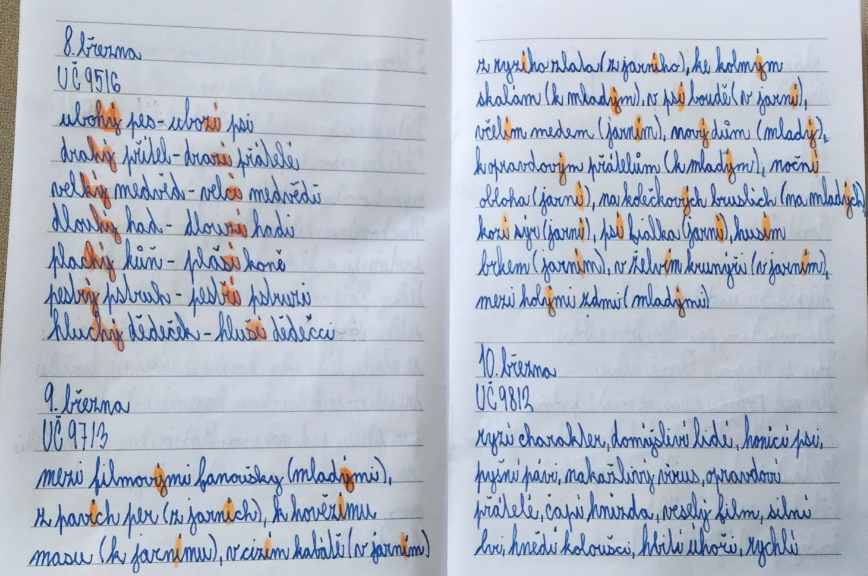 8. března
UČ 95/6
ubohý pes - ubozí psi
drahý přítel - drazí přátelé
velký medvěd - velcí medvědi
dlouhý had - dlouzí hadi
plachý kůň - plaší koně
pestrý pstruh - pestří pstruzi
hluchý dědeček - hluší dědečci
9. března
UČ 97/3
mezi filmovými fanoušky (mladými),
z pavích per (z jarních), k hovězímu
masu (k jarnímu), v cizím kabátě (v jarním)
z ryzího zlata (z jarního), ke kolmým
skalám (k mladým), v psí boudě (v jarní),
včelím medem (jarním), nový dům (mladý),
k opravdovým přátelům (k mladým), noční
obloha (jarní), na kolečkových bruslích (na mladých)
kozí sýr (jarní), psí fialka (jarní), husím
brkem (jarním), v želvím krunýři (v jarním),
mezi holými zdmi (mladými)
10. března
UČ 98/2
ryzí charakter, domýšliví lidé, honicí psi,
pyšní pávi, nakažlivý virus, opravdoví
přátelé, čapí hnízda, veselý film, silní
lvi, hnědí koloušci, hbití úhoři, rychlí